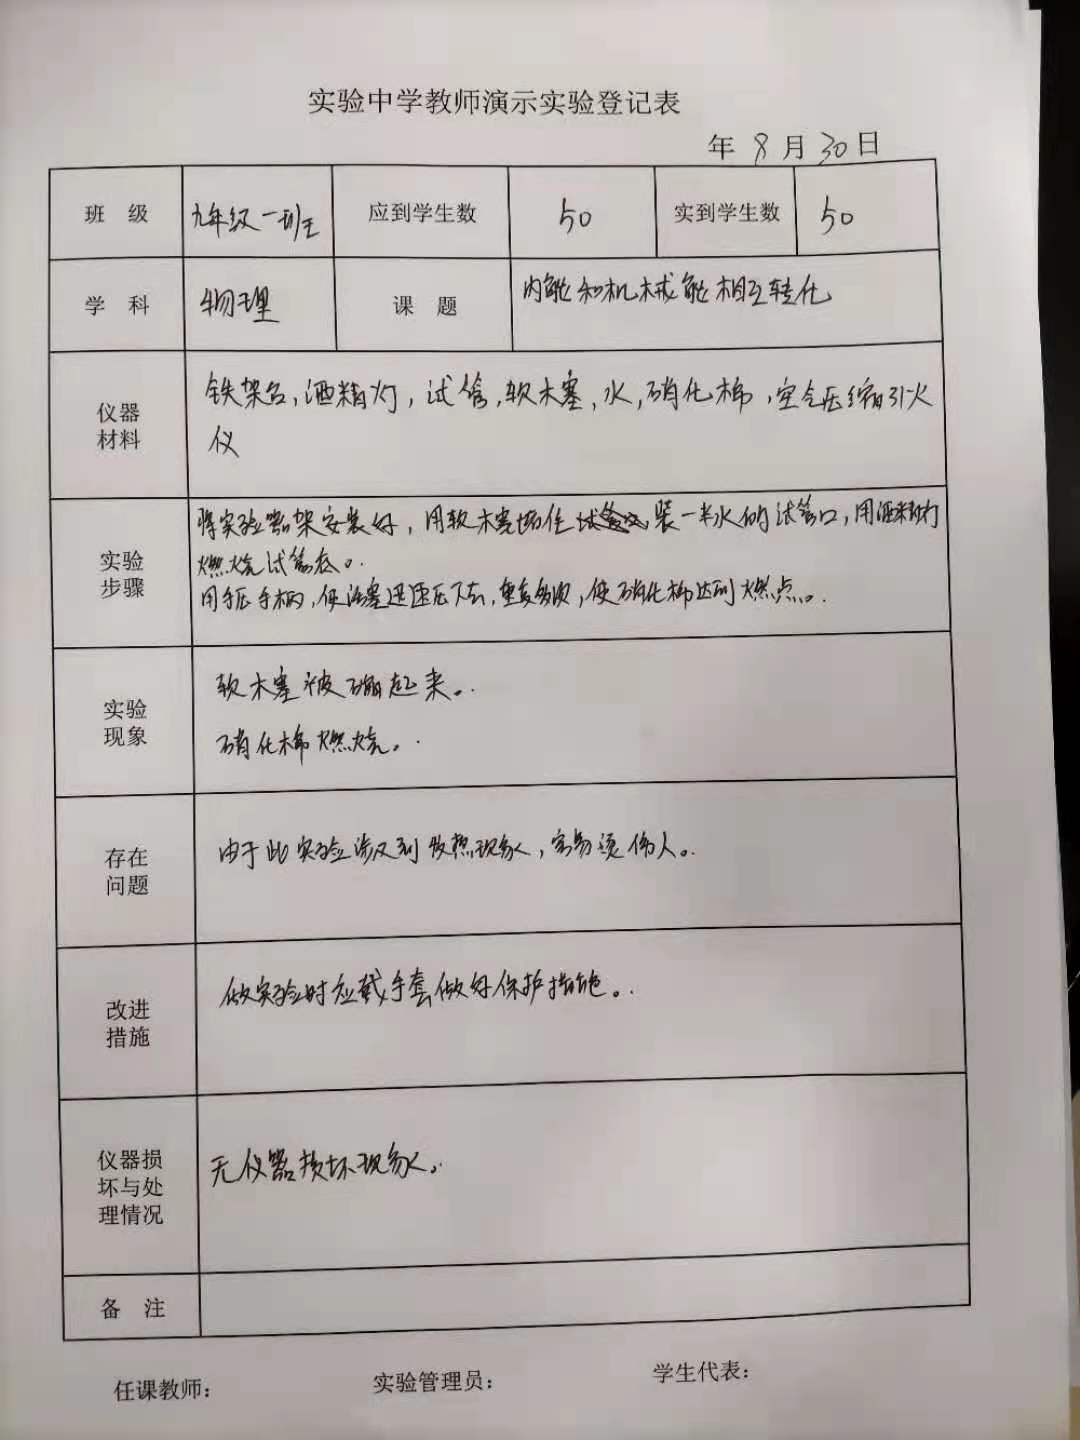 实验中学教师演示实验登记表
年 8 月 30 日
班 级 九年级一班 应到学生数 50 实到学生数 50
学 科 物理 课 题 内能和机械能相互转化
仪器
材料
铁架台,酒精灯,试管,软木塞,水,硝化棉,空气压缩引火
仪
实验
步骤
将实验器架安装好,用软木塞塞住装一半水的试管口,用酒精灯
燃烧试管底。
用手压手柄,使活塞迅速压下去,重复多次,使硝化棉达到燃点。
实验
现象
软木塞被崩起来。
硝化棉燃烧。
存在
问题
由于此实验涉及到发热现象,容易烫伤人。
改进
措施
做实验时应戴手套做好保护措施。
仪器损
坏与处
理情况
无仪器损坏现象。
备 注
任课教师: 实验管理员: 学生代表: